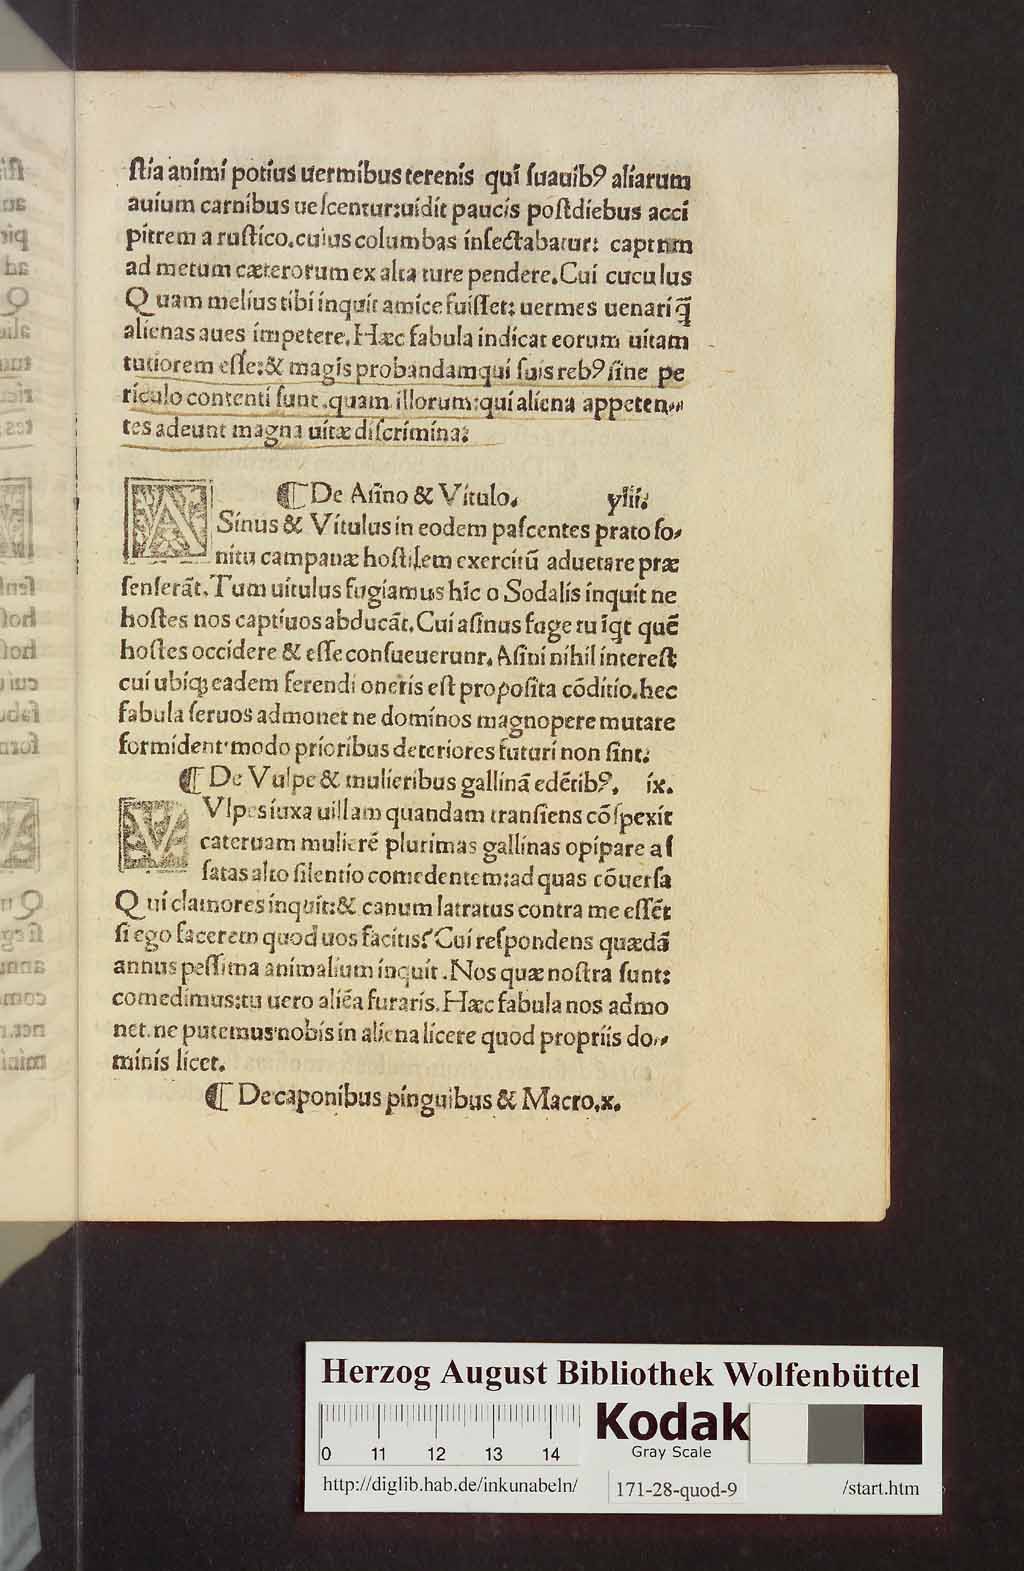 ſtia animi potius uermibus terenis qui ſuauibꝰ aliarum
auium carnibus ueſcentur:uidit paucis poſtdiebus acci
pitrem a ruſtico.cuius columbas inſectabatur: captum
ad metum cæterorum ex alta ture pendere.Cui cuculus
Quam melius tibi inquit amice fuiſſet: uermes uenari q̃
alienas aues impetere.Hæc fabula indicat eorum uitam
tutiorem eſſe:& magis probandam qui ſuis rebꝰ ſine pe
riculo contenti ſunt.quam illorum:qui aliena appeten⸗
tes adeunt magna uitæ diſcrimina:
¶ De Aſino & Vitulo. yiii:
ASinus & Vitulus in eodem paſcentes prato ſo⸗
nitu campanæ hoſtilem exercitũ aduetare præ
ſenſerãt.Tum uitulus fugiamus hic o Sodalis inquit ne
hoſtes nos captiuos abducãt.Cui aſinus fuge tu iq̃t quẽ
hoſtes occidere & eſſe conſueuerunr.Aſini nihil intereſt
cui ubiqꝫ eadem ferendi oneris eſt propoſita cõditio.hec
fabula ſeruos admonet ne dominos magnopere mutare
formident·modo prioribus deteriores futuri non ſint:
¶ De Vulpe & mulieribus gallinã edẽtibꝰ. ix.
VVlpes iuxa uillam quandam tranſiens cõſpexit
cateruam mulierẽ plurimas gallinas opipare aſ
ſatas alto ſilentio comedentem:ad quas cõuerſa
Qui clamores inquit:& canum latratus contra me eſſẽt
ſi ego facerem quod uos facitis? Cui reſpondens quædã
annus peſſima animalium inquit .Nos quæ noſtra ſunt:
comedimus:tu uero aliẽa furaris.Hæc fabula nos admo
net.ne putemus nobis in aliena licere quod propriis do⸗
minis licet.
¶ De caponibus pinguibus & Macro.x.
Herzog August Bibliothek Wolfenbüttel
0 11 12 13 14
Kodak
Gray Scale
http://diglib.hab.de/inkunabeln/ 171-28-quod-9 /start.htm